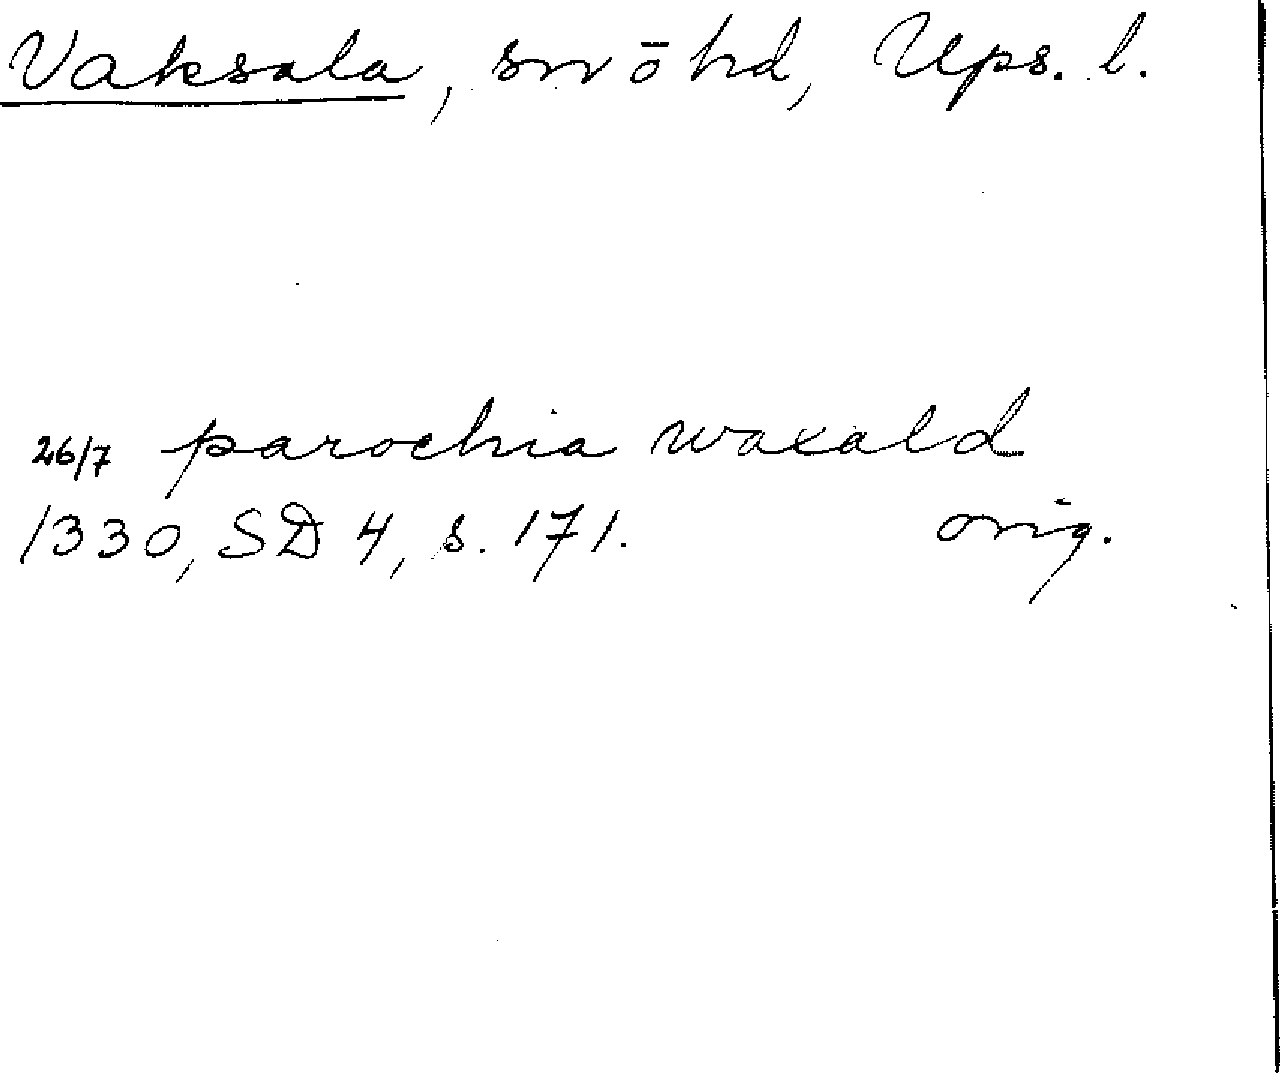 Vaksala, sn o hd, Ups. l.
26/7 parochia waxald
1330, SD 4, s. 171. orig.